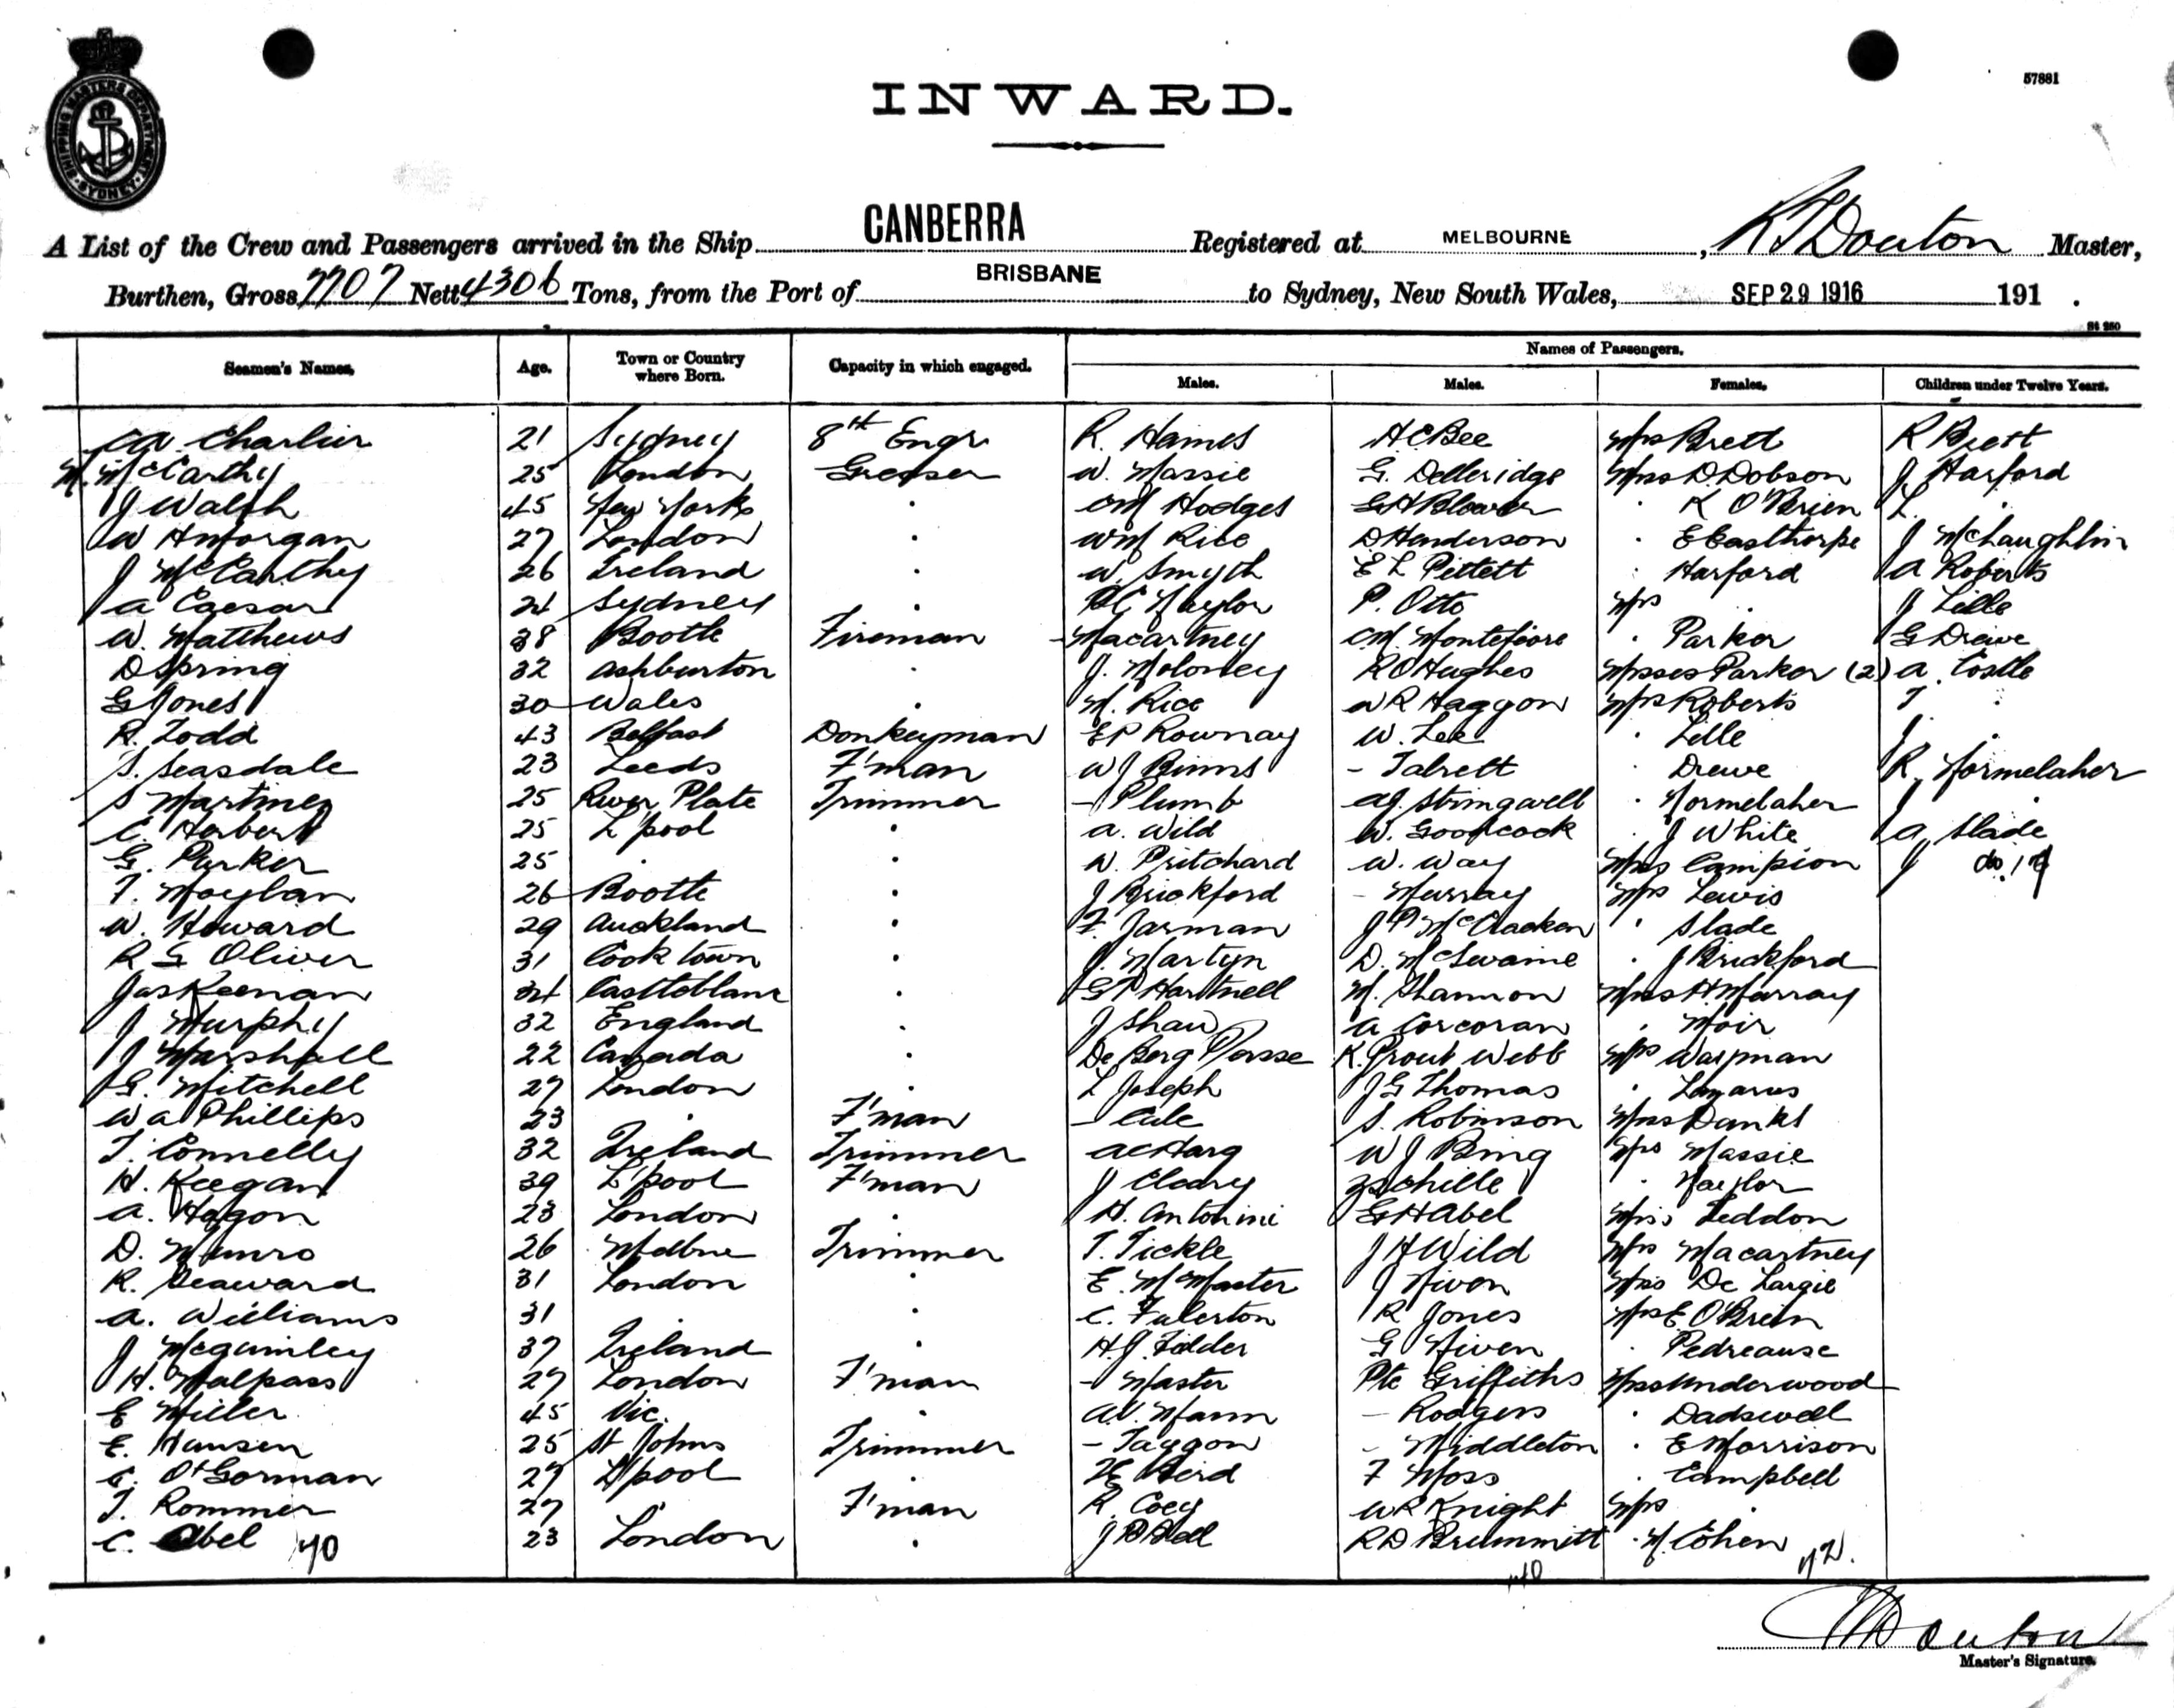 SHIPPING MASTERS DEPARTMENT SYDNEY
57881
INWARD.
A List of the Crew and Passengers arrived in the Ship CANBERRA Registered at MELBOURNE, Master,
Burthen, Gross 7707 Nett 4306 Tons, from the Port of BRISBANE to Sydney, New South Wales, SEP 29 1916 191 .
Seamen's Names. Age. Town or Country where Born. Capacity in which engaged. Names of Passengers.
Males. Males. Females. Children under Twelve Years.
Charlier 21 Sydney 8th Engr R. Haines A C Bee Mrs Brett R Brett
M. McCarthy 25 London Greaser W. Massie G. Delleridge Miss D. Dobson J Harford
J Walsh 45 New York . Hodges G H . K O'Brien L .
W H Morgan 27 London . W M Rice D Henderson . E Easthorpe J McLaughlin
J McCarthy 26 Ireland . W. Smyth E L Pittett . Harford A Roberts
A Caesar 21 Sydney . Naylor P. Otto Mrs . J Lille
W. Matthews 38 Bootle Fireman Macartney Montefiore . Parker G Drewe
D Spring 32 Ashburton . J. Moloney R O Hughes Misses Parker (2) A. Costle
G Jones 30 Wales . M. Rice W R Haggon Mrs Roberts .
R. Todd 43 Belfast Donkeyman E P Rownay W. Lee . Lille J .
S. Seasdale 23 Leeds F'man W J Binns - Talrett . Drewe R. Normelaher
S Martinez 25 River Plate Trimmer - Plumb A J. Stringwell . Normelaher J .
C. Herbert 25 L'pool . A. Wild W. Goodcock . J White A. Slade
G. Parker 25 . . W. Pritchard W. Way Miss Campion
F. Moylan 26 Bootle . J Brickford - Murray Mrs Lewis
W. Howard 29 Auckland . F. Jarman J P McClacken . Slade
R G Oliver 31 Cooktown . J. Martyn D. McSwaine . J Brickford
Jas Keenan Castleblane . G P Hartnell M. Shannon Miss H Murray
J Murphy 32 England . J Shaw A Corcoran . Moir
J Marshall 22 Canada . De Berg Persse K. Prout Webb Mrs Waxman
G. Mitchell 27 London . L Joseph J G Thomas . Lazarus
W A Phillips 23 . F'man - Cule S. Robinson Miss Danks
T. Connelly 32 Ireland Trimmer A C Harg W J Bing Mrs Massie
H. Keegan 39 L'pool F'man J Cleary Zschille . Naylor
A. Hogon 23 London . H. Antonini G H Abel Miss Seddon
D. Munro 26 Melbne Trimmer T. Tickle J H Wild Mrs Macartney
R. Seaward 31 London . E. McMaster J Niven Miss De Largie
A. Williams 31 . C. Fulerton R Jones Mrs E. O'Brien
J McGuinley 37 Ireland . H. J. Fidder G Niven . Pedreause
H. Malpass 27 London F'man - Master Pte Griffiths Miss Underwood
E Miller 45 Vic. . A V. Mann - Rodgers . Dadswell
E. Hansen 25 St Johns Trimmer - Taggon - Middleton . E Morrison
C. O'Gorman 27 L'pool . F Moss . Campbell
T. Rommer 27 F'man R. Coey W R Knight Mrs .
C. Abel 23 London . J B Bell R D Brummitt . M. Cohen
40 40 42.
Master's Signature.